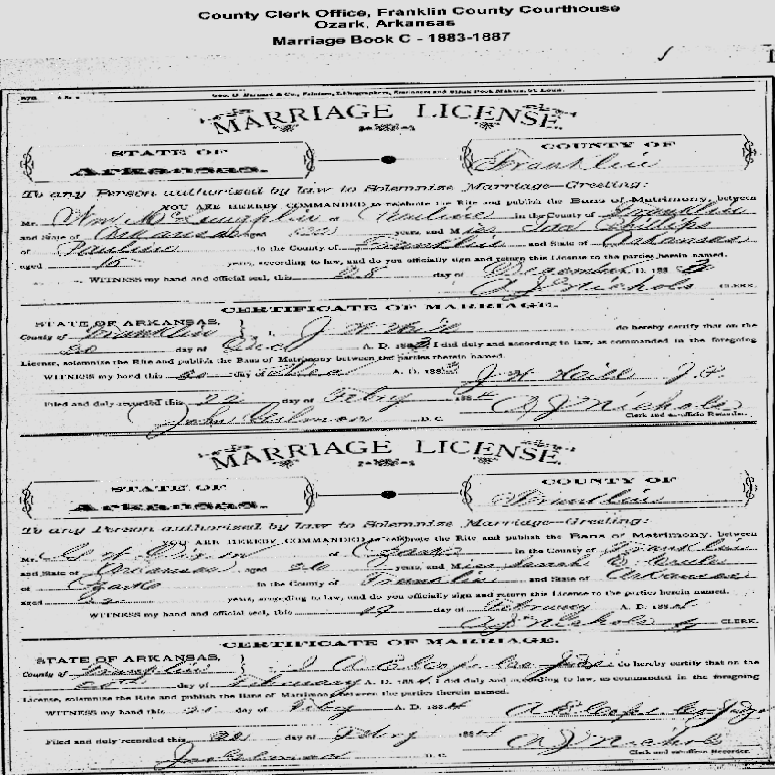 County Clerk Office, Franklin County Courthouse
Ozark, Arkansas
Marriage Book C - 1883-1887
MARRIAGE LICENSE.
STATE OF COUNTY OF
Arkansas. Franklin
To any Person authorized by law to Solemnize Marriage—Greeting:
YOU ARE HEREBY COMMANDED to celebrate the Rite and publish the Bans of Matrimony, between
Mr. Wm McLaughlin of in the County of Franklin
and State of Arkansas aged years, and Miss Phillips
of to the County of Franklin and State of Arkansas
aged years, according to law, and do you officially sign and return this License to the parties herein named.
WITNESS my hand and official seal, this 28 day of December A. D. 1883
A J Nichols CLERK.
CERTIFICATE OF MARRIAGE.
STATE OF ARKANSAS,
County of Franklin } I, do hereby certify that on the
30 day of A. D. 1883, I did duly and according to law, as commanded in the foregoing
License, solemnize the Rite and publish the Bans of Matrimony between the parties therein named.
WITNESS my hand this 30 day of A. D. 1883 J. P.
Filed and duly recorded this 22 day of Feby 1884 A J Nichols
John D. C. Clerk and ex-officio Recorder.
MARRIAGE LICENSE.
STATE OF COUNTY OF
Arkansas. Franklin
To any Person authorized by law to Solemnize Marriage—Greeting:
YOU ARE HEREBY COMMANDED to celebrate the Rite and publish the Bans of Matrimony, between
Mr. of Ozark in the County of Franklin
and State of Arkansas aged 26 years, and Miss Sarah
of Ozark to the County of Franklin and State of Arkansas
aged years, according to law, and do you officially sign and return this License to the parties herein named.
WITNESS my hand and official seal, this 19 day of February A. D. 1884
A J Nichols CLERK.
CERTIFICATE OF MARRIAGE.
STATE OF ARKANSAS,
County of Franklin } I, Co Judge do hereby certify that on the
day of February A. D. 1884, I did duly and according to law, as commanded in the foregoing
License, solemnize the Rite and publish the Bans of Matrimony between the parties therein named.
WITNESS my hand this 21 day of Feby A. D. 1884 Co Judge
Filed and duly recorded this 22 day of Feby 1884 A J Nichols
D. C. Clerk and ex-officio Recorder.